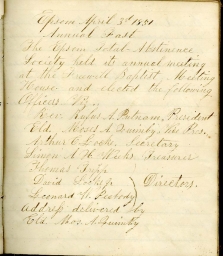 Epsom April 3d 1851
Annual Fast
The Epsom Total Abstinence
Society held its annual meeting
at the Freewill Baptist Meeting
House and elected the following
Officers Viz.
Rev. Rufus A. Putnam, President
Eld. Moses A. Quimby, Vice Pres.
Arthur C. Locke, Secretary
Simon A. H. Wicks Treasurer
Thomas
David Locke Jr Directors.
Leonard W. Peabody
Address delivered by
Eld. Mos. A. Quimby